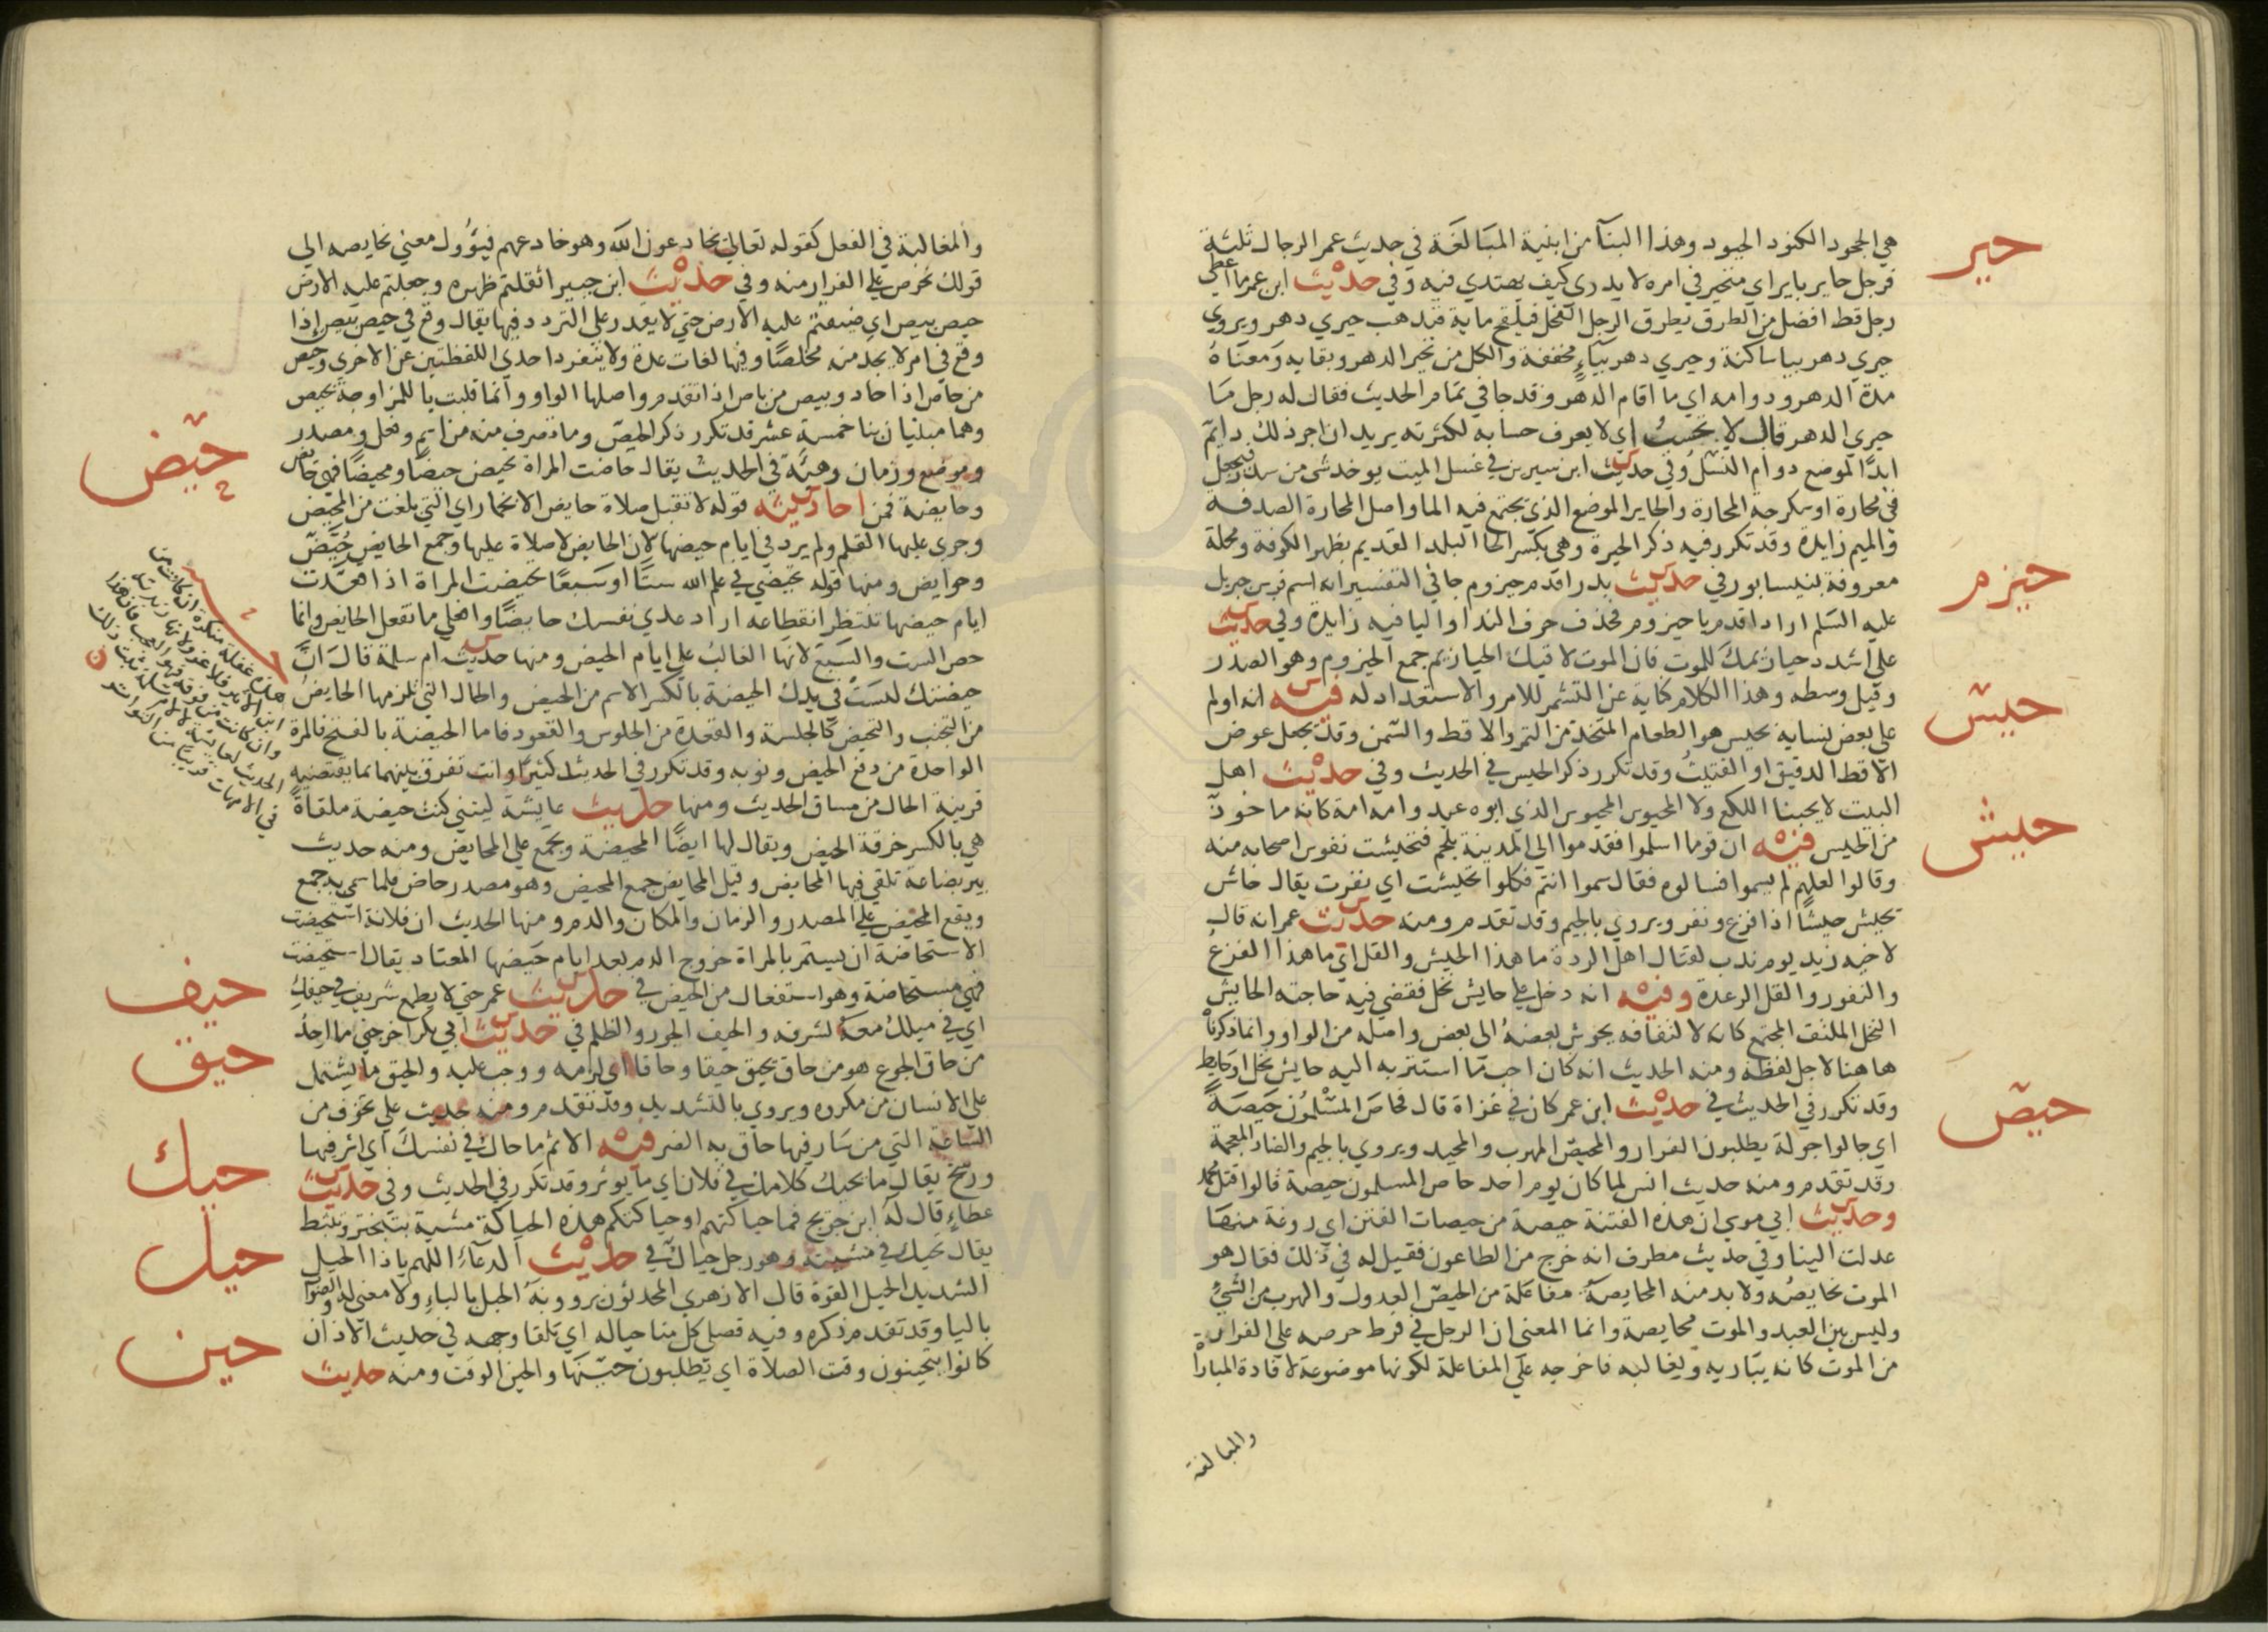 حير
هي الجحود الكنود الحيود وهذا البنآ من ابنية المبَالغَة في حديث عمر الرجال ثلثة
فرجل حاير باير اي متحير في امره لا يدري كيف يهتدي فيه وفي حديث ابن عمر ما أعطى
رجل قط افضل من الطرق يطرق الرجل الفحل فيلقح ماية فيذهب حيري دهر ويروي
حيري دهر بيا ساكنة وحيري دهر بيآءٍ مخففة والكل من تحير الدهر وبقايه ومعناهُ
مدة الدهر ودوامه اي ما اقام الدهر وقد جا في تمام الحديث فقال له رجل مَا
حيري الدهر قال لا يحسبُ اي لا يعرف حسابه لكثرته يريد ان اجر ذلك دايم
ابدًا لموضع دوام النسْل وفي حديث ابن سيرين في غسل الميت يوخذ شي من سدر فيجعل
في محارة او سكرجة المحارة والحاير الموضع الذي يجتمع فيه الما واصل المحارة الصدفة
والميم زايدة وقد تكرر فيه ذكر الحيرة وهي بكسر الحا البلد القديم بظهر الكوفة ومحلة
حيزم
معروفة بنيسابور في حديث بدر اقدم حيزوم جا في التفسير انه اسم فرس جبريل
عليه السّلم اراد اقدم يا حيزوم فحذف حرف الندا واليا فيه زايدة وفي حديث
علي اشدد حيازيمك للموت فان الموت لاقيك الحيازيم جمع الحيزوم وهو الصدر
حيس
وقيل وسطه وهذا الكلام كناية عن التشمر للامر والاستعداد له فيه انه اولم
علي بعض نسايه بحيس هو الطعام المتخذ من التمر والاقط والسّمن وقد يجعل عوض
الاقط الدقيق او الفتيتُ وقد تكرر ذكر الحيس في الحديث وفي حديث اهل
البيت لا يحبنا اللكع ولا المحيوس المحيوس الذي ابوه عبد وامه امة كانه ماخوذ
حيش
من الحيس فيه ان قوما اسلموا فقدموا الي المدينة بلحم فتحيشت نفوس اصحابه منه
وقالوا لعلهم لم يسموا فسالوه فقال سموا انتم فكلوا تحيشت اي نفرت يقال حاش
يحيش حيشًا اذا فزع ونفر ويروي بالجيم وقد تقدم ومنه حديث عمر انه قال
لاخيه زيد يوم ندب لقتال اهل الردة ما هذا الحيش والقل اي ما هذا الفزعُ
والنفور والقل الرعدة وفيه انه دخل علي حايش نخل فقضي فيه حاجته الحايش
النخل الملتف المجتمع كانه لالتفافه يحوش بعضهُ الى بعض واصله من الواو وانما ذكرناه
هاهنا لاجل لفظه ومنه الحديث انه كان احب مّا استتر به اليه حايش نخل او حايط
حيص
وقد تكرر في الحديث في حديث ابن عمر كان في غزاة قال فحاصَ المسْلمُون حَيصَةً
اي جالوا جولة يطلبون الفرار والمحيصُ المهرب والمحيد ويروي بالجيم والضاد المعجمة
وقد تقدم ومنه حديث انس لما كان يوم احد حاص المسلمون حيصة قالوا قتل محمد
وحديث ابي موسي ان هذه الفتنة حيصة من حيصات الفتن اي روغة منهَا
عدلت الينا وفي حديث مطرف انه خرج من الطاعون فقيل له في ذلك فقال هو
الموت نحايصُه ولا بد منه المحايصةُ مفاعلة من الحيصِ العدول والهرب من الشيُ
وليس بين العبد والموت محايصة وانما المعنى ان الرجل في فرط حرصه علي الفرار
من الموت كانه يبَاريه ويغالبه فاخرجه علي المفاعلة لكونها موضوعة لافادة المباراة
والمبالغة
والمغالبة في الفعل كقوله تعالي يخادعون الله وهو خادعهم فيؤُول معني نحايصه الي
قولك نحرص علي الفرار منه وفي حديث ابن جبير اثقلتم ظهره وجعلتم عليه الارض
حيص بيص اي ضيقتم عليه الارض حتي لا يقدر على التردد فيها يقال وقع في حيص بَيص إذا
وقع في امر لا يجد منه مخلصًا وفيها لغات عدة ولا تنفرد احدي اللفظتين عن الاخري وحيص
من حاص اذا حاد وبيص من باص اذا تقدم واصلها الواو وانما قلبت يا للمزاوجة بحيص
وهما مبنيان بنا خمسة عشر قد تكرر ذكر الحيض وما تصرف منه من اسم وفعل ومصدر
حيض
وموضع وزمان وهيئة في الحديث يقال حاضت المراة تحيض حيضًا ومحيضًا فهي حايض
وحايضة فمن احاديثه قوله لا تقبل صلاة حايض الا بخمار اي التي بلغت من المحيض
وجري عليها القلم ولم يرد في ايام حيضها لان الحايض لا صلاة عليها وجمع الحايض حُيَّضٌ
وحوايض ومنها قوله تحيضي في علم الله ستًا او سَبعًا تحيضت المراة اذا قعدت
ايام حيضها تنتظر انقطاعه اراد عدي نفسك حايضًا وافعلي ما تفعل الحايض وانما
خص الست والسّبع لانها الغالبُ علي ايام الحيض ومنها حديث ام سلمة قال انَّ
حيضتك لَيسَتْ في يدك الحيضة بالكسر الاسم من الحيض والحال التي تلزمها الحايضُ
من التجنب والتحيض كالجلسة والقعدة من الجلوس والقعود فاما الحيضة بالفتح فالمرة
الواحدة من دفع الحيض ونوبه وقد تكرر في الحديث كثيرًا وانت تفرق بينهما بما يقتضيه
قرينة الحال من مساق الحديث ومنها حديث عايشة ليتني كنت حيضة ملقاةً
هي بالكسر خرقة الحيض ويقال لها ايضًا المحيضة وتجمع علي المحايض ومنه حديث
بير بضاعة تلقي فيها المحايض وقيل المحايض جمع المحيض وهو مصدر حاض فلما سمي به جمع
ويقع المحيض علي المصدر والزمان والمكان والدم ومنها الحديث ان فلانة استحيضت
الاستحاضة ان يستمر بالمراة خروج الدم بعد ايام حيضها المعتاد يقال استحيضت
حيف
فهي مستحاضة وهو استفعال من الحيض في حديث عمر حتي لا يطمع شريف في حيفك
حيق
اي في ميلك معهُ لشرفه والحيف الجور والظلم في حديث ابي بكر اخرجني ما اجدُ
من حاق الجوع هو من حاق يحيق حيقا وحاقا اي لزمه ووجب عليه والحيق ما يشتمل
علي الانسان من مكروه ويروي بالتشديد وقد تقدم ومنه حديث علي تخوف من
حيك
الساعة التي من سَار فيها حاق به الضر فيه الاثم ما حاك في نفسك اي اثر فيها
ورسخ يقال ما يحيك كلامك في فلان اي ما يوثر وقد تكرر في الحديث وفي حديث
عطاءٍ قال لهُ ابن جريج فما حياكتهم او حياكتكم هذه الحياكة مشية بتبختر وتثبط
حيل
يقال تحيك في مشيته وهو رجل حياك في حديث الدعآءِ اللهم ياذا الحيل
الشديد الحيل القوة قال الازهري المحدثون يروونهُ الحبل بالباءِ ولا معني له والصواب
باليا وقد تقدم ذكره وفيه فصلي كل منا حياله اي تلقا وجهه في حديث الاذان
حين
كانوا يتحينون وقت الصلاة اي يطلبون حينهَا والحين الوقت ومنه حديث